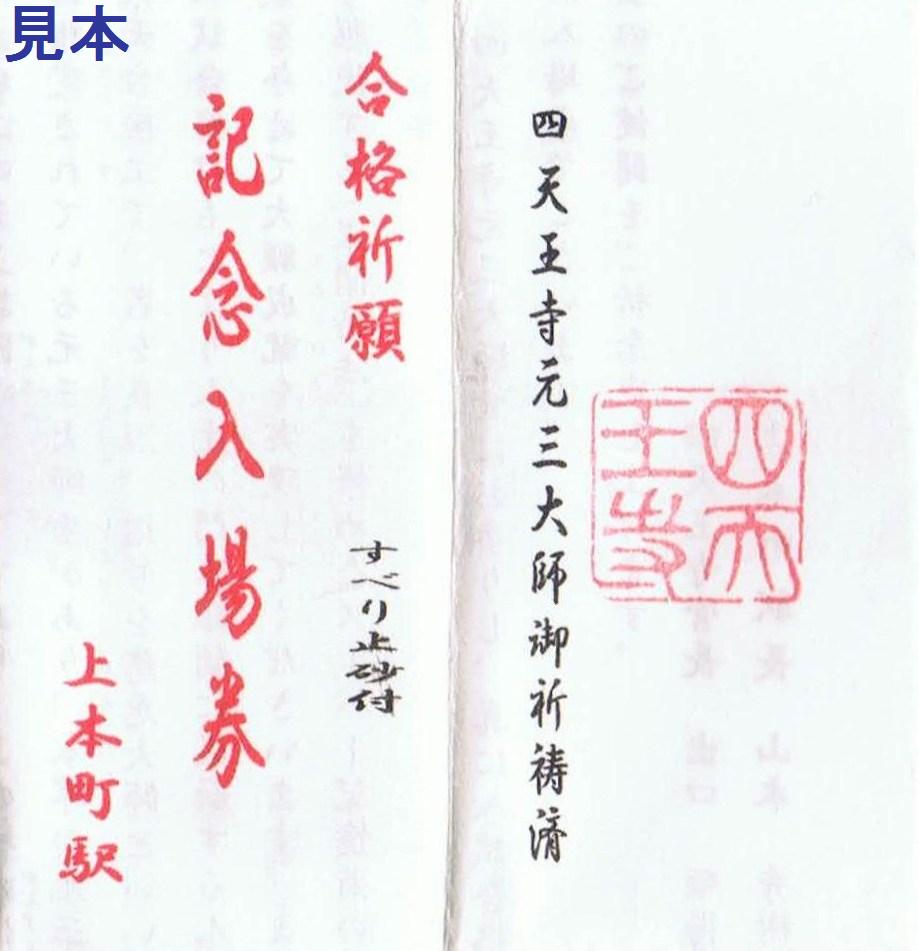 見本
四天王寺
四天王寺元三大師御祈祷済
合格祈願
すべり止砂付
記念入場券
上本町駅